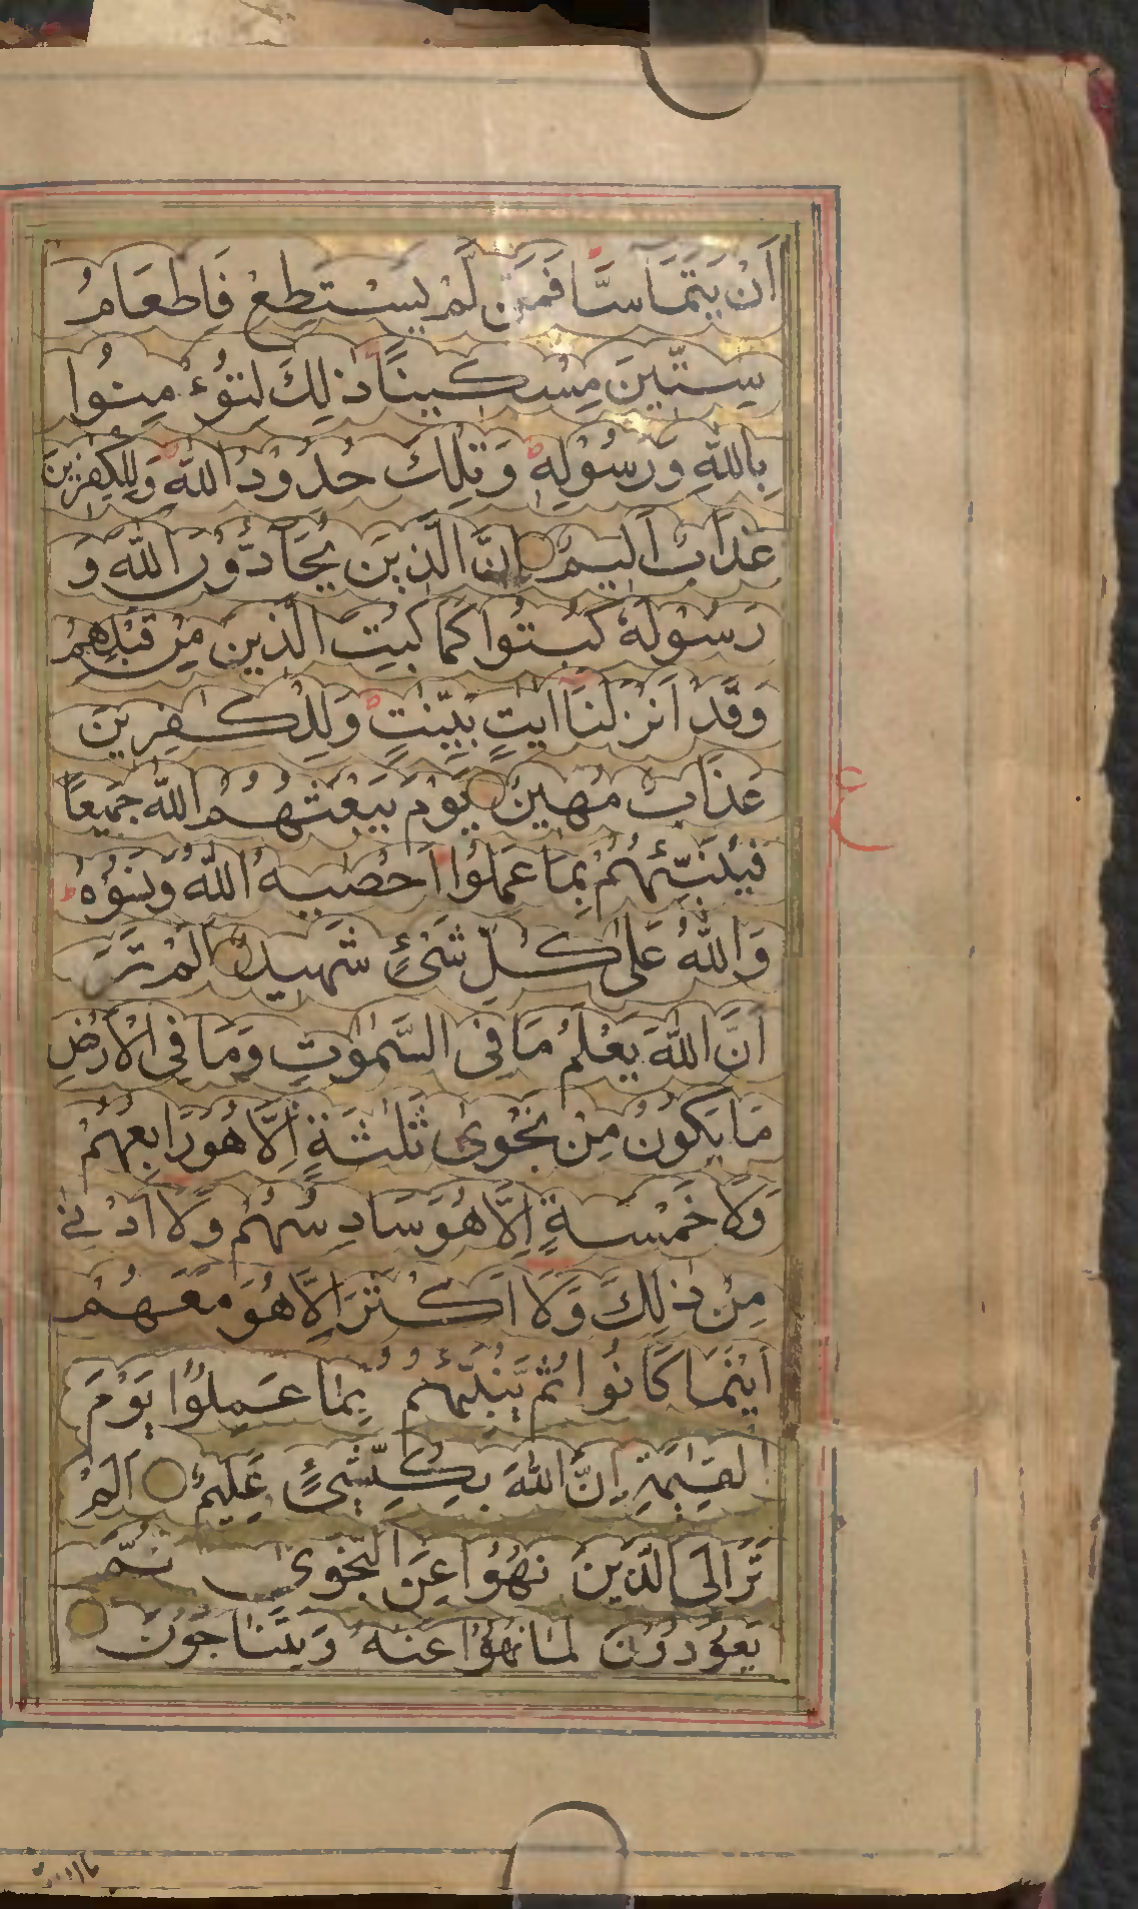 اَنْ يَتَمَاسَّا فَمَنْ لَّمْ يَسْتَطِعْ فَاِطْعَامُ
سِتِّيْنَ مِسْكِيْنًا ذٰلِكَ لِتُؤْمِنُوْا
بِاللّٰهِ وَرَسُوْلِهٖ وَتِلْكَ حُدُوْدُ اللّٰهِ وَلِلْكٰفِرِيْنَ
عَذَابٌ اَلِيْمٌ اِنَّ الَّذِيْنَ يُحَآدُّوْنَ اللّٰهَ وَ
رَسُوْلَهٗ كُبِتُوْا كَمَا كُبِتَ الَّذِيْنَ مِنْ قَبْلِهِمْ
وَقَدْ اَنْزَلْنَا اٰيٰتٍ بَيِّنٰتٍ وَلِلْكٰفِرِيْنَ
عَذَابٌ مُهِيْنٌ يَوْمَ يَبْعَثُهُمُ اللّٰهُ جَمِيْعًا
فَيُنَبِّئُهُمْ بِمَا عَمِلُوْا اَحْصٰىهُ اللّٰهُ وَنَسُوْهُ
وَاللّٰهُ عَلٰى كُلِّ شَىْءٍ شَهِيْدٌ اَلَمْ تَرَ
اَنَّ اللّٰهَ يَعْلَمُ مَا فِى السَّمٰوٰتِ وَمَا فِى الْاَرْضِ
مَا يَكُوْنُ مِنْ نَجْوٰى ثَلٰثَةٍ اِلَّا هُوَ رَابِعُهُمْ
وَلَا خَمْسَةٍ اِلَّا هُوَ سَادِسُهُمْ وَلَا اَدْنٰى
مِنْ ذٰلِكَ وَلَا اَكْثَرَ اِلَّا هُوَ مَعَهُمْ
اَيْنَمَا كَانُوْا ثُمَّ يُنَبِّئُهُمْ بِمَا عَمِلُوْا يَوْمَ
الْقِيٰمَةِ اِنَّ اللّٰهَ بِكُلِّ شَىْءٍ عَلِيْمٌ اَلَمْ
تَرَ اِلَى الَّذِيْنَ نُهُوْا عَنِ النَّجْوٰى ثُمَّ
يَعُوْدُوْنَ لِمَا نُهُوْا عَنْهُ وَيَتَنَاجَوْنَ
ع